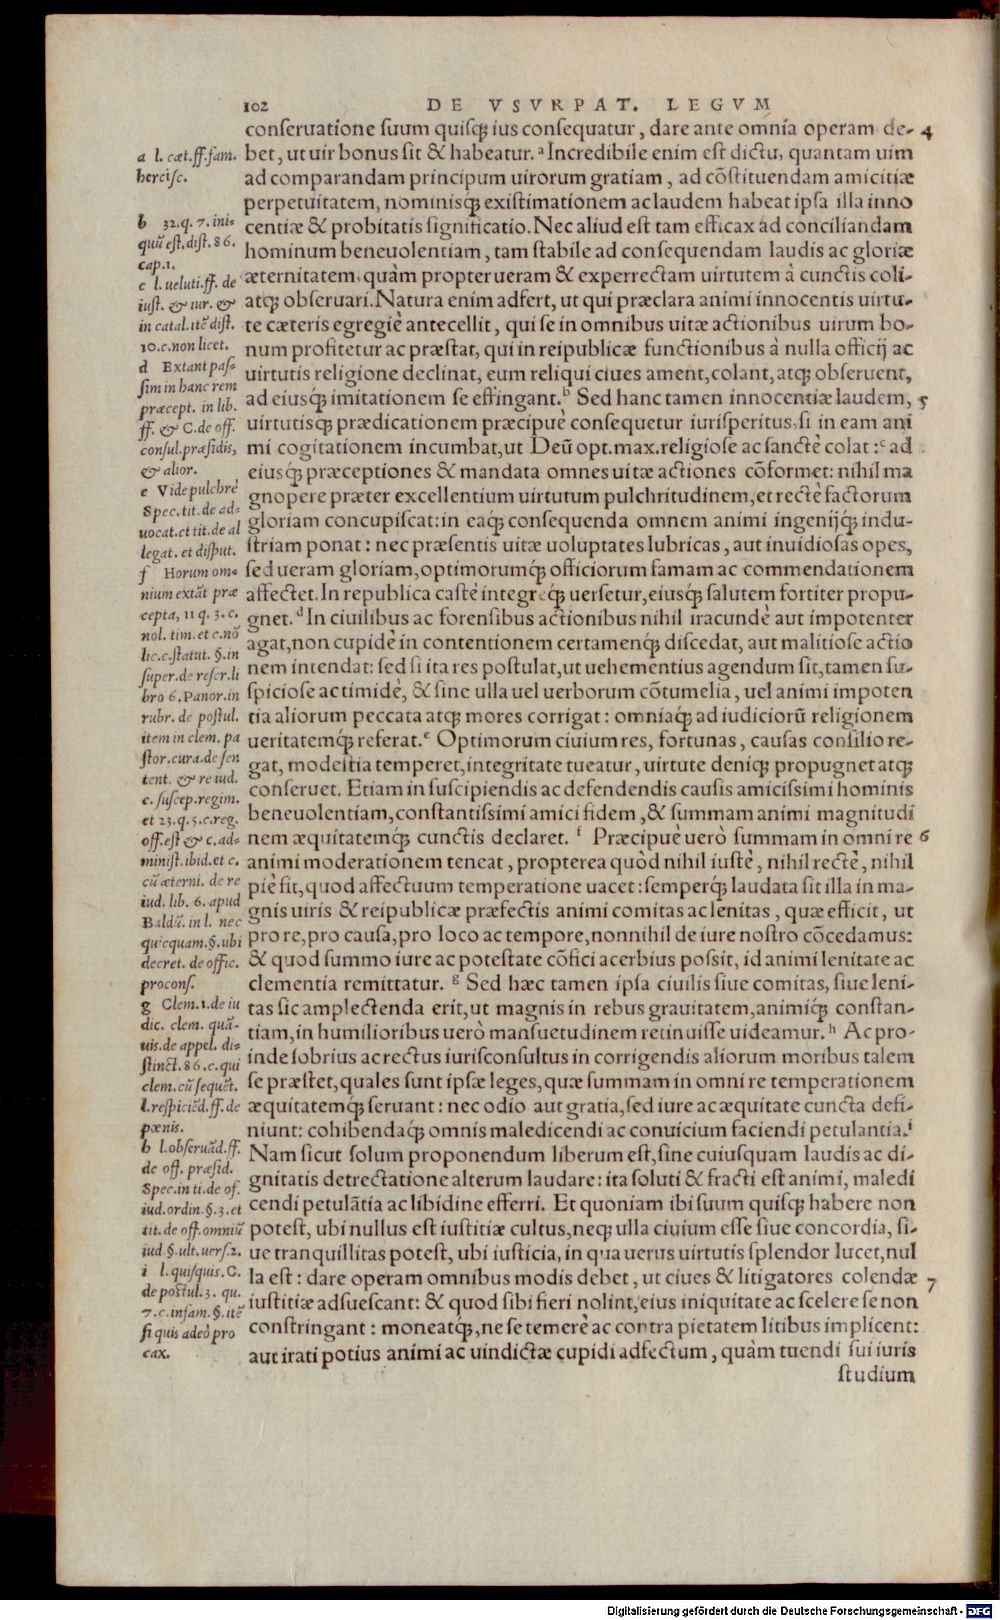 102 DE VSVRPAT. LEGVM
conſeruatione ſuum quiſq́; ius conſequatur, dare ante omnia operam de- 4
bet, ut uir bonus ſit & habeatur. ᵃ Incredibile enim eſt dictu, quantam uim
ad comparandam principum uirorum gratiam, ad cõſtituendam amicitiæ
perpetuitatem, nominisq́; exiſtimationem ac laudem habeat ipſa illa inno
centiæ & probitatis ſignificatio. Nec aliud eſt tam efficax ad conciliandam
hominum beneuolentiam, tam ſtabile ad conſequendam laudis ac gloriæ
æternitatem, quàm propter ueram & experrectam uirtutem à cunctis coli-
atq; obſeruari. Natura enim adfert, ut qui præclara animi innocentis uirtu-
te cæteris egregiè antecellit, qui ſe in omnibus uitæ actionibus uirum bo-
num profitetur ac præſtat, qui in reipublicæ functionibus à nulla officij ac
uirtutis religione declinat, eum reliqui ciues ament, colant, atq; obſeruent,
ad eiusq́; imitationem ſe effingant. ᵇ Sed hanc tamen innocentiæ laudem, 5
uirtutisq; prædicationem præcipuè conſequetur iuriſperitus, ſi in eam ani
mi cogitationem incumbat, ut Deũ opt. max. religioſe ac ſanctè colat: ᶜ ad
eiusq́; præceptiones & mandata omnes uitæ actiones cõformet: nihil ma
gnopere præter excellentium uirtutum pulchritudinem, et rectè factorum
gloriam concupiſcat: in eaq́; conſequenda omnem animi ingenijq́; indu-
ſtriam ponat: nec præſentis uitæ uoluptates lubricas, aut inuidioſas opes,
ſed ueram gloriam, optimorumq́; officiorum famam ac commendationem
affectet. In republica caſtè integreq́; uerſetur, eiusq́; ſalutem fortiter propu-
gnet. ᵈ In ciuilibus ac forenſibus actionibus nihil iracundè aut impotenter
agat, non cupidè in contentionem certamenq́; diſcedat, aut malitioſe actio
nem intendat: ſed ſi ita res poſtulat, ut uehementius agendum ſit, tamen ſu-
ſpicioſe ac timidè, & ſine ulla uel uerborum cõtumelia, uel animi impoten
tia aliorum peccata atq; mores corrigat: omniaq́; ad iudiciorũ religionem
ueritatemq́; referat. ᵉ Optimorum ciuium res, fortunas, cauſas conſilio re-
gat, modeſtia temperet, integritate tueatur, uirtute deniq; propugnet atq;
conſeruet. Etiam in ſuſcipiendis ac defendendis cauſis amiciſſimi hominis
beneuolentiam, conſtantiſſimi amici fidem, & ſummam animi magnitudi
nem æquitatemq́; cunctis declaret. ᶠ Præcipuè uerò ſummam in omni re 6
animi moderationem teneat, propterea quòd nihil iuſtè, nihil rectè, nihil
piè fit, quod affectuum temperatione uacet: ſemperq́; laudata ſit illa in ma-
gnis uiris & reipublicæ præfectis animi comitas ac lenitas, quæ efficit, ut
pro re, pro cauſa, pro loco ac tempore, nonnihil de iure noſtro cõcedamus:
& quod ſummo iure ac poteſtate cõfici acerbius poſſit, id animi lenitate ac
clementia remittatur. ᵍ Sed hæc tamen ipſa ciuilis ſiue comitas, ſiue leni-
tas ſic amplectenda erit, ut magnis in rebus grauitatem, animiq́; conſtan-
tiam, in humilioribus uerò manſuetudinem retinuiſſe uideamur. ʰ Ac pro-
inde ſobrius ac rectus iuriſconſultus in corrigendis aliorum moribus talem
ſe præſtet, quales ſunt ipſæ leges, quæ ſummam in omni re temperationem
æquitatemq́; ſeruant: nec odio aut gratia, ſed iure ac æquitate cuncta defi-
niunt: cohibendaq́; omnis maledicendi ac conuicium faciendi petulantia. ⁱ
Nam ſicut ſolum proponendum liberum eſt, ſine cuiuſquam laudis ac di-
gnitatis detrectatione alterum laudare: ita ſoluti & fracti eſt animi, maledi
cendi petulãtia ac libidine efferri. Et quoniam ibi ſuum quiſq; habere non
poteſt, ubi nullus eſt iuſtitiæ cultus, neq; ulla ciuium eſſe ſiue concordia, ſi-
ue tranquillitas poteſt, ubi iuſticia, in qua uerus uirtutis ſplendor lucet, nul
la eſt: dare operam omnibus modis debet, ut ciues & litigatores colendæ 7
iuſtitiæ adſueſcant: & quod ſibi fieri nolint, eius iniquitate ac ſcelere ſe non
conſtringant: moneatq́;, ne ſe temerè ac contra pietatem litibus implicent:
aut irati potius animi ac uindictæ cupidi adfectum, quàm tuendi ſui iuris
ſtudium
a l. cæt. ff. fam.
herciſc.
b 32. q. 7. ini-
quũ eſt. diſt. 86.
cap. 1.
c l. ueluti. ff. de
iuſt. & iur. &
in catal. itẽ diſt.
10. c. non licet.
d Extant paſ-
ſim in hanc rem
præcept. in lib.
ff. & C. de off.
conſul. præſidis,
& alior.
e Vide pulchrè
Spec. tit. de ad-
uocat. et tit. de al
legat. et diſput.
f Horum om-
nium extãt præ
cepta, 11 q. 3. c.
nol. tim. et c. nõ
lic. c. ſtatut. §. in
ſuper. de reſcr. li
bro 6. Panor. in
rubr. de poſtul.
item in clem. pa
ſtor. cura. de ſen
tent. & re iud.
c. ſuſcep. regim.
et 23. q. 5. c. reg.
off. eſt & c. ad-
miniſt. ibid. et c.
cũ æterni. de re
iud. lib. 6. apud
Baldũ. in l. nec
quicquam. §. ubi
decret. de offic.
proconſ.
g Clem. 1. de iu
dic. clem. quã-
uis. de appel. di-
ſtinct. 86. c. qui
clem. cũ ſequẽt.
l. reſpiciẽd. ff. de
pœnis.
h l. obſeruãd. ff.
de off. præſid.
Spec. in ti. de of.
iud. ordin. §. 3. et
tit. de off. omniũ
iud. §. ult. uerſ. 2.
i l. quiſquis. C.
de poſtul. 3. qu.
7. c. infam. §. itẽ
ſi quis adeò pro
cax.
Digitalisierung gefördert durch die Deutsche Forschungsgemeinschaft - DFG